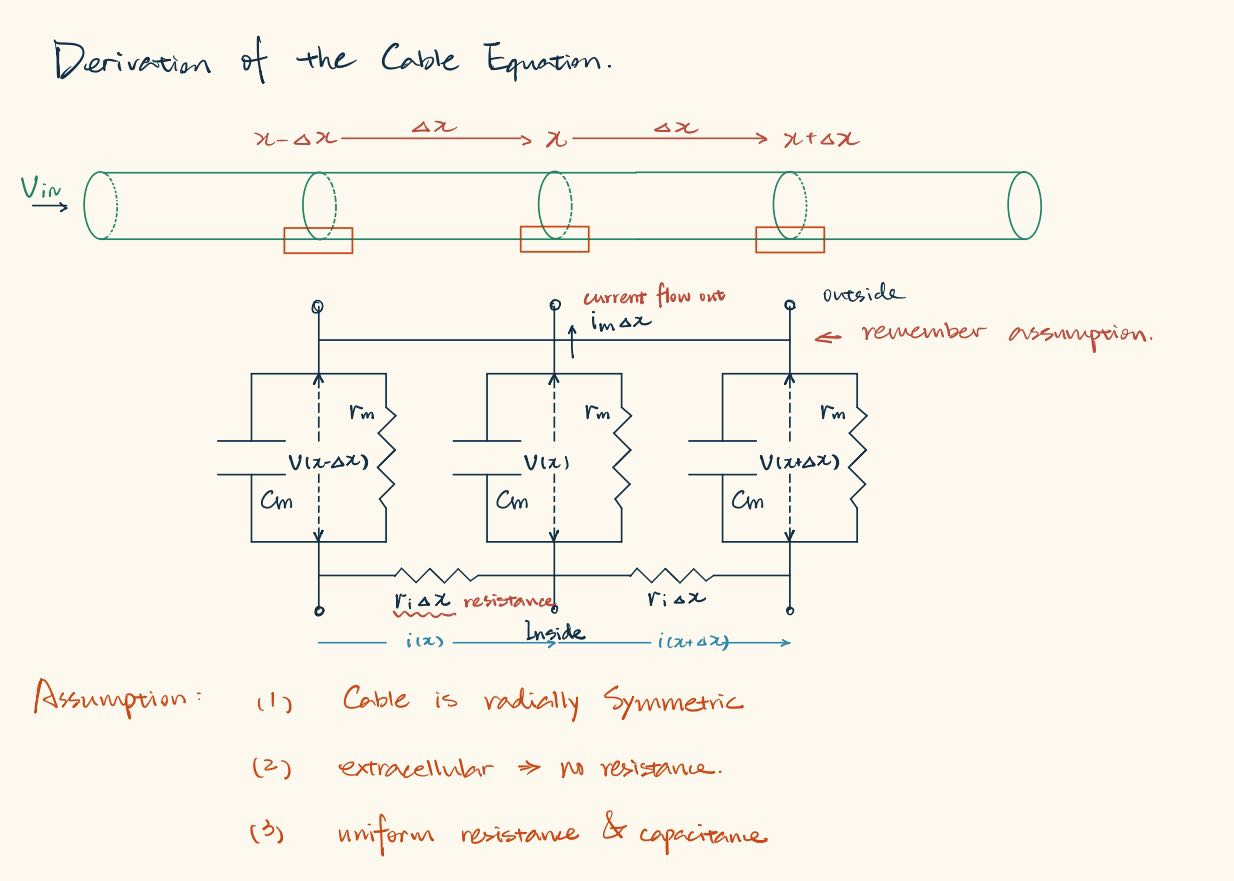 Derivation of the Cable Equation.
x-Δx Δx x Δx x+Δx
Vin
current flow out
outside
imΔx
← remember assumption.
rm rm rm
V(x-Δx) V(x) V(x+Δx)
Cm Cm Cm
riΔx resistance riΔx
Inside
i(x) i(x+Δx)
Assumption: (1) Cable is radially Symmetric
(2) extracellular → no resistance.
(3) uniform resistance & capacitance